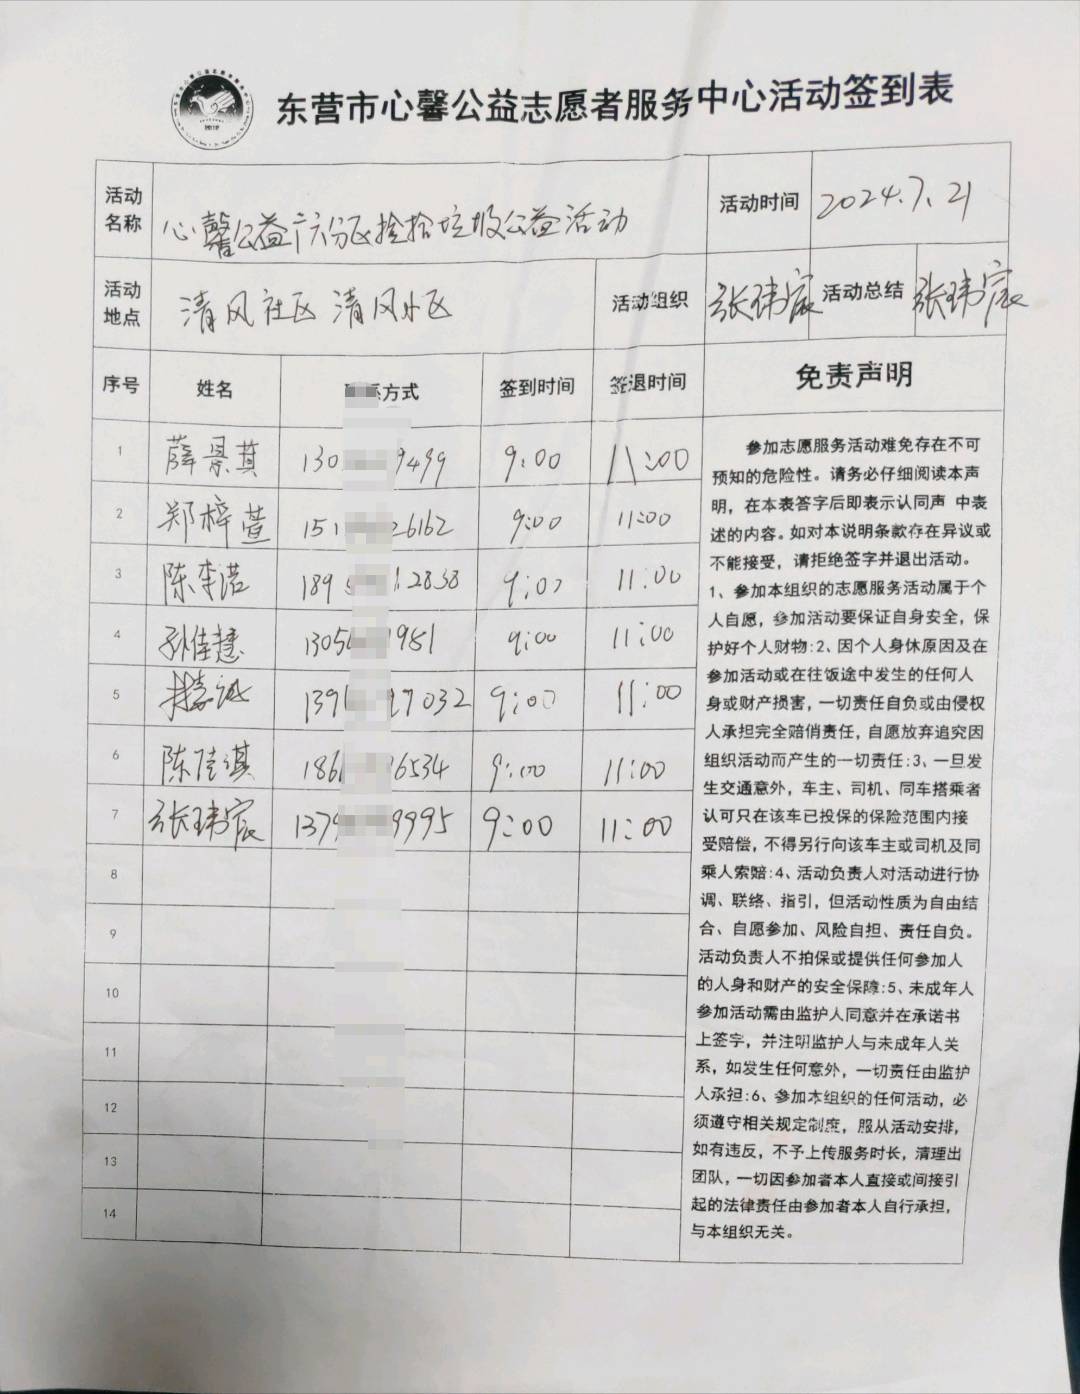 东营市心馨公益志愿者服务中心活动签到表
活动名称 心馨公益六分区捡拾垃圾公益活动 活动时间 2024.7.21
活动地点 清风社区 清风小区 活动组织 张玮宸 活动总结 张玮宸
序号 姓名 系方式 签到时间 签退时间 免责声明
1 薛景其 130 9499 9:00 11:00
2 郑梓萱 151 26162 9:00 11:00
3 陈李浩 189 2838 9:00 11:00
4 孙佳慧 1305 1981 9:00 11:00
5 139 97032 9:00 11:00
6 陈佳淇 186 6534 9:00 11:00
7 张玮宸 1379 9995 9:00 11:00
8
9
10
11
12
13
14
参加志愿服务活动难免存在不可
预知的危险性。请务必仔细阅读本声
明，在本表签字后即表示认同声 中表
述的内容。如对本说明条款存在异议或
不能接受，请拒绝签字并退出活动。
1、参加本组织的志愿服务活动属于个
人自愿，参加活动要保证自身安全，保
护好个人财物:2、因个人身休原因及在
参加活动或在往饭途中发生的任何人
身或财产损害，一切责任自负或由侵权
人承担完全赔俏责任，自愿放弃追究因
组织活动而产生的一切责任:3、一旦发
生交通意外，车主、司机、同车搭乘者
认可只在该车已投保的保险范围内接
受赔偿，不得另行向该车主或司机及同
乘人索赔:4、活动负责人对活动进行协
调、联络、指引，但活动性质为自由结
合、自愿参加、风险自担、责任自负。
活动负责人不拍保或提供任何参加人
的人身和财产的安全保障:5、未成年人
参加活动需由监护人同意并在承诺书
上签字，并注明监护人与未成年人关
系，如发生任何意外，一切责任由监护
人承担:6、参加本组织的任何活动，必
须遵守相关规定制度，服从活动安排，
如有违反，不予上传服务时长，清理出
团队，一切因参加者本人直接或间接引
起的法律责任由参加者本人自行承担，
与本组织无关。